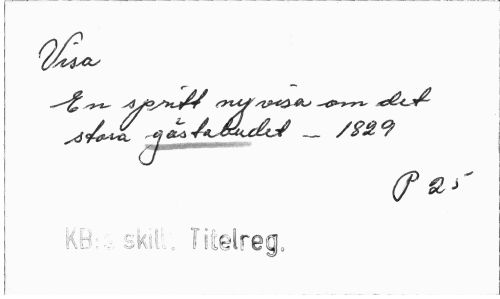 Visa
En spritt ny visa om det
stora gästabudet – 1829
P 25
KB:s skill. Titelreg.